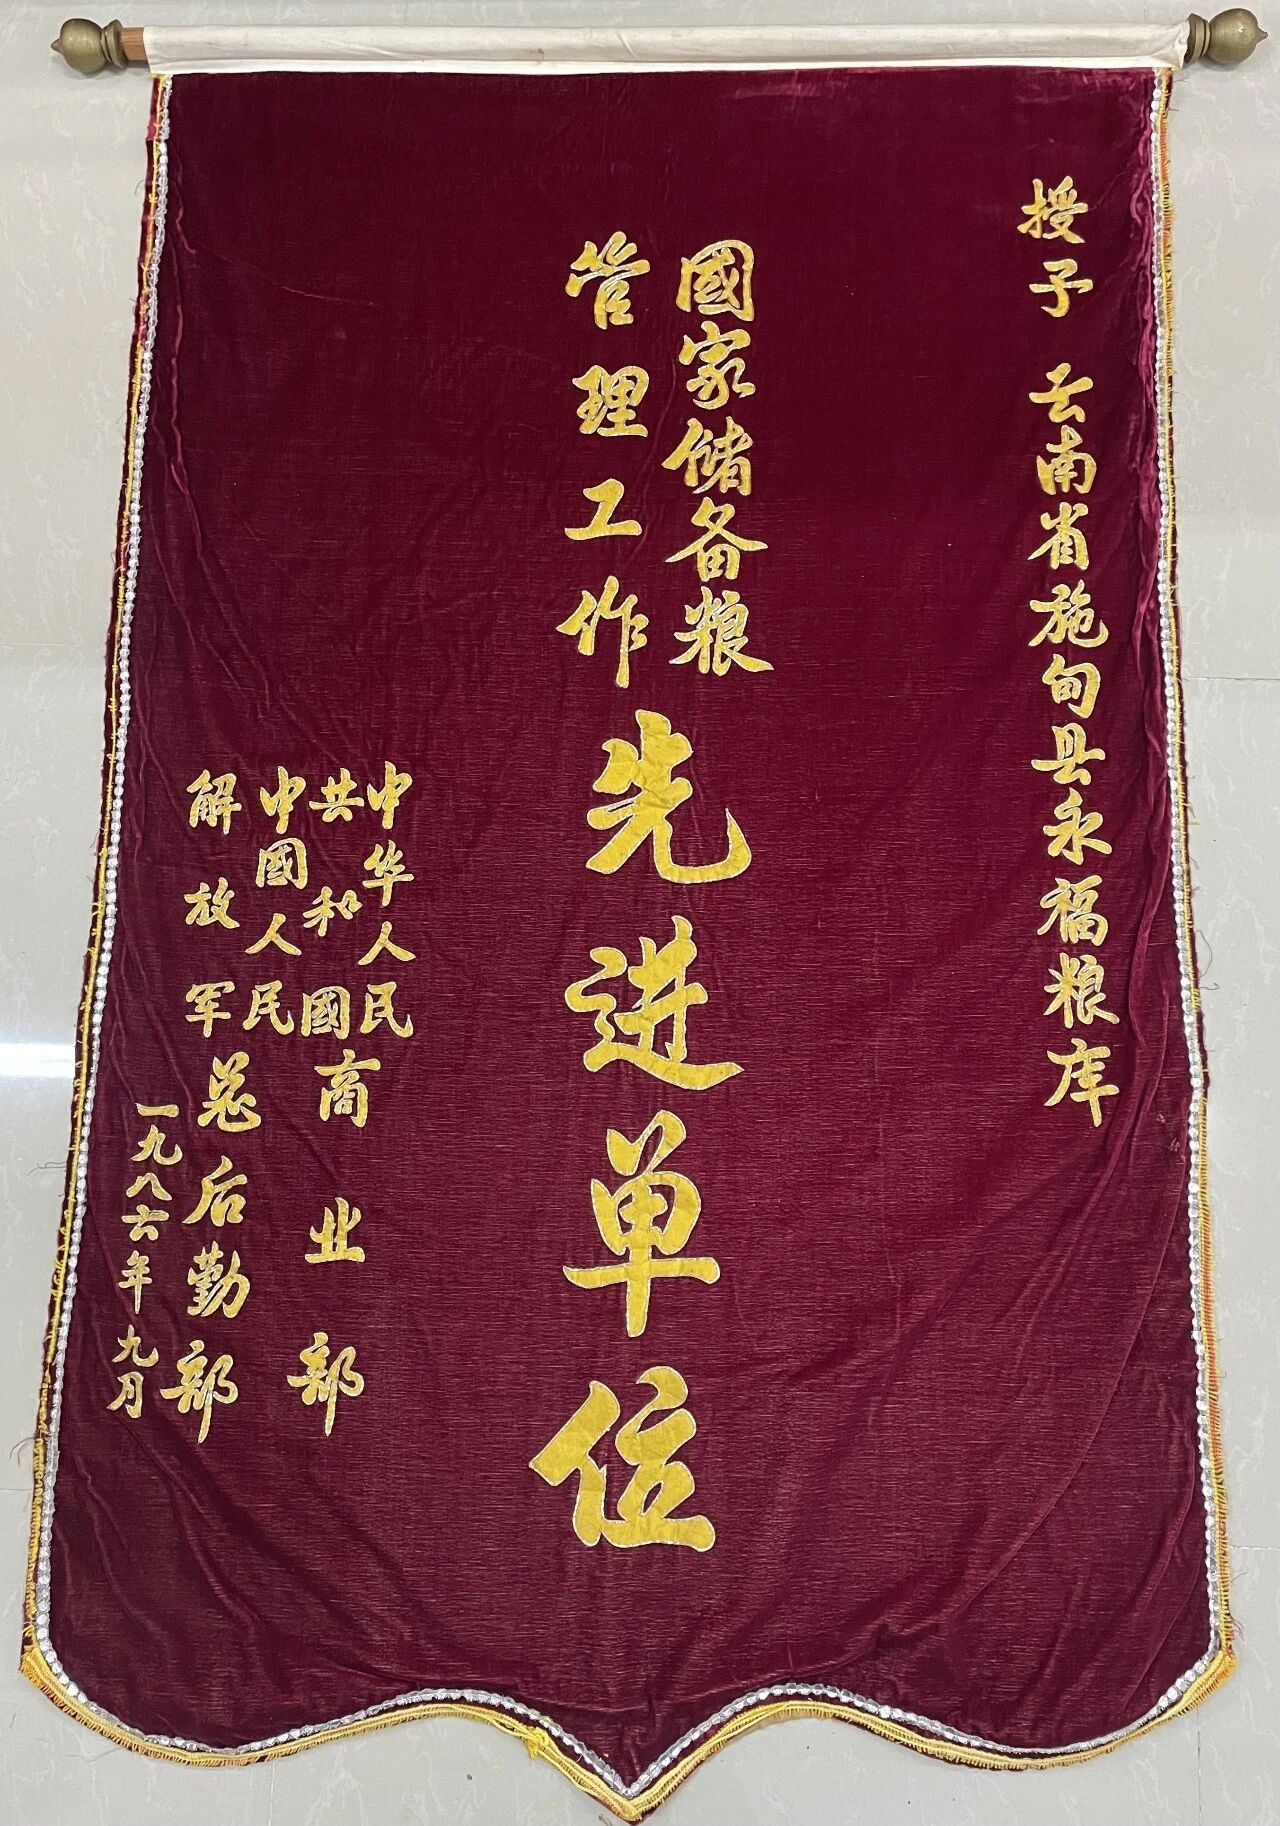 授予 云南省施甸县永福粮库
國家储备粮
管理工作
先进单位
中华人民
共和國商业部
中國人民
解放军总后勤部
一九八六年九月